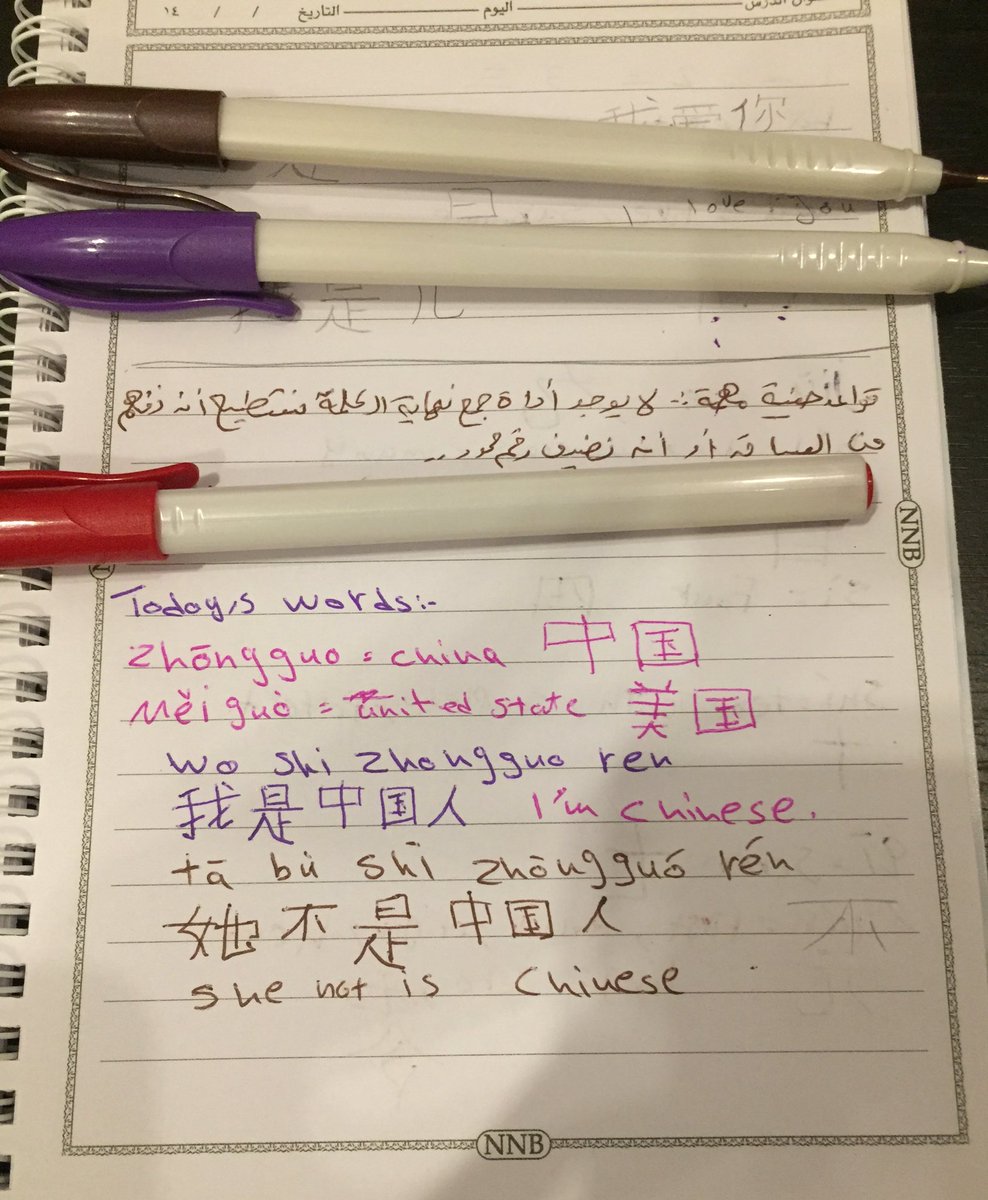 اليوم التاريخ / / ١٤
我 爱 你
love you
是
我 是 儿
قواعد صينية مهمة :- لا يوجد أداة جمع نهاية الكلمة نستطيع أن نفهم
من السياق أو أن نضيف رقم محدد ..
NNB
Today,s words:-
Zhōngguo = china 中 国
Měi guò = united state 美 国
wo shi zhongguo ren
我 是 中 国 人 I'm chinese.
tā bù shì zhōngguó rén
她 不 是 中 国 人
不
she not is Chinese
NNB